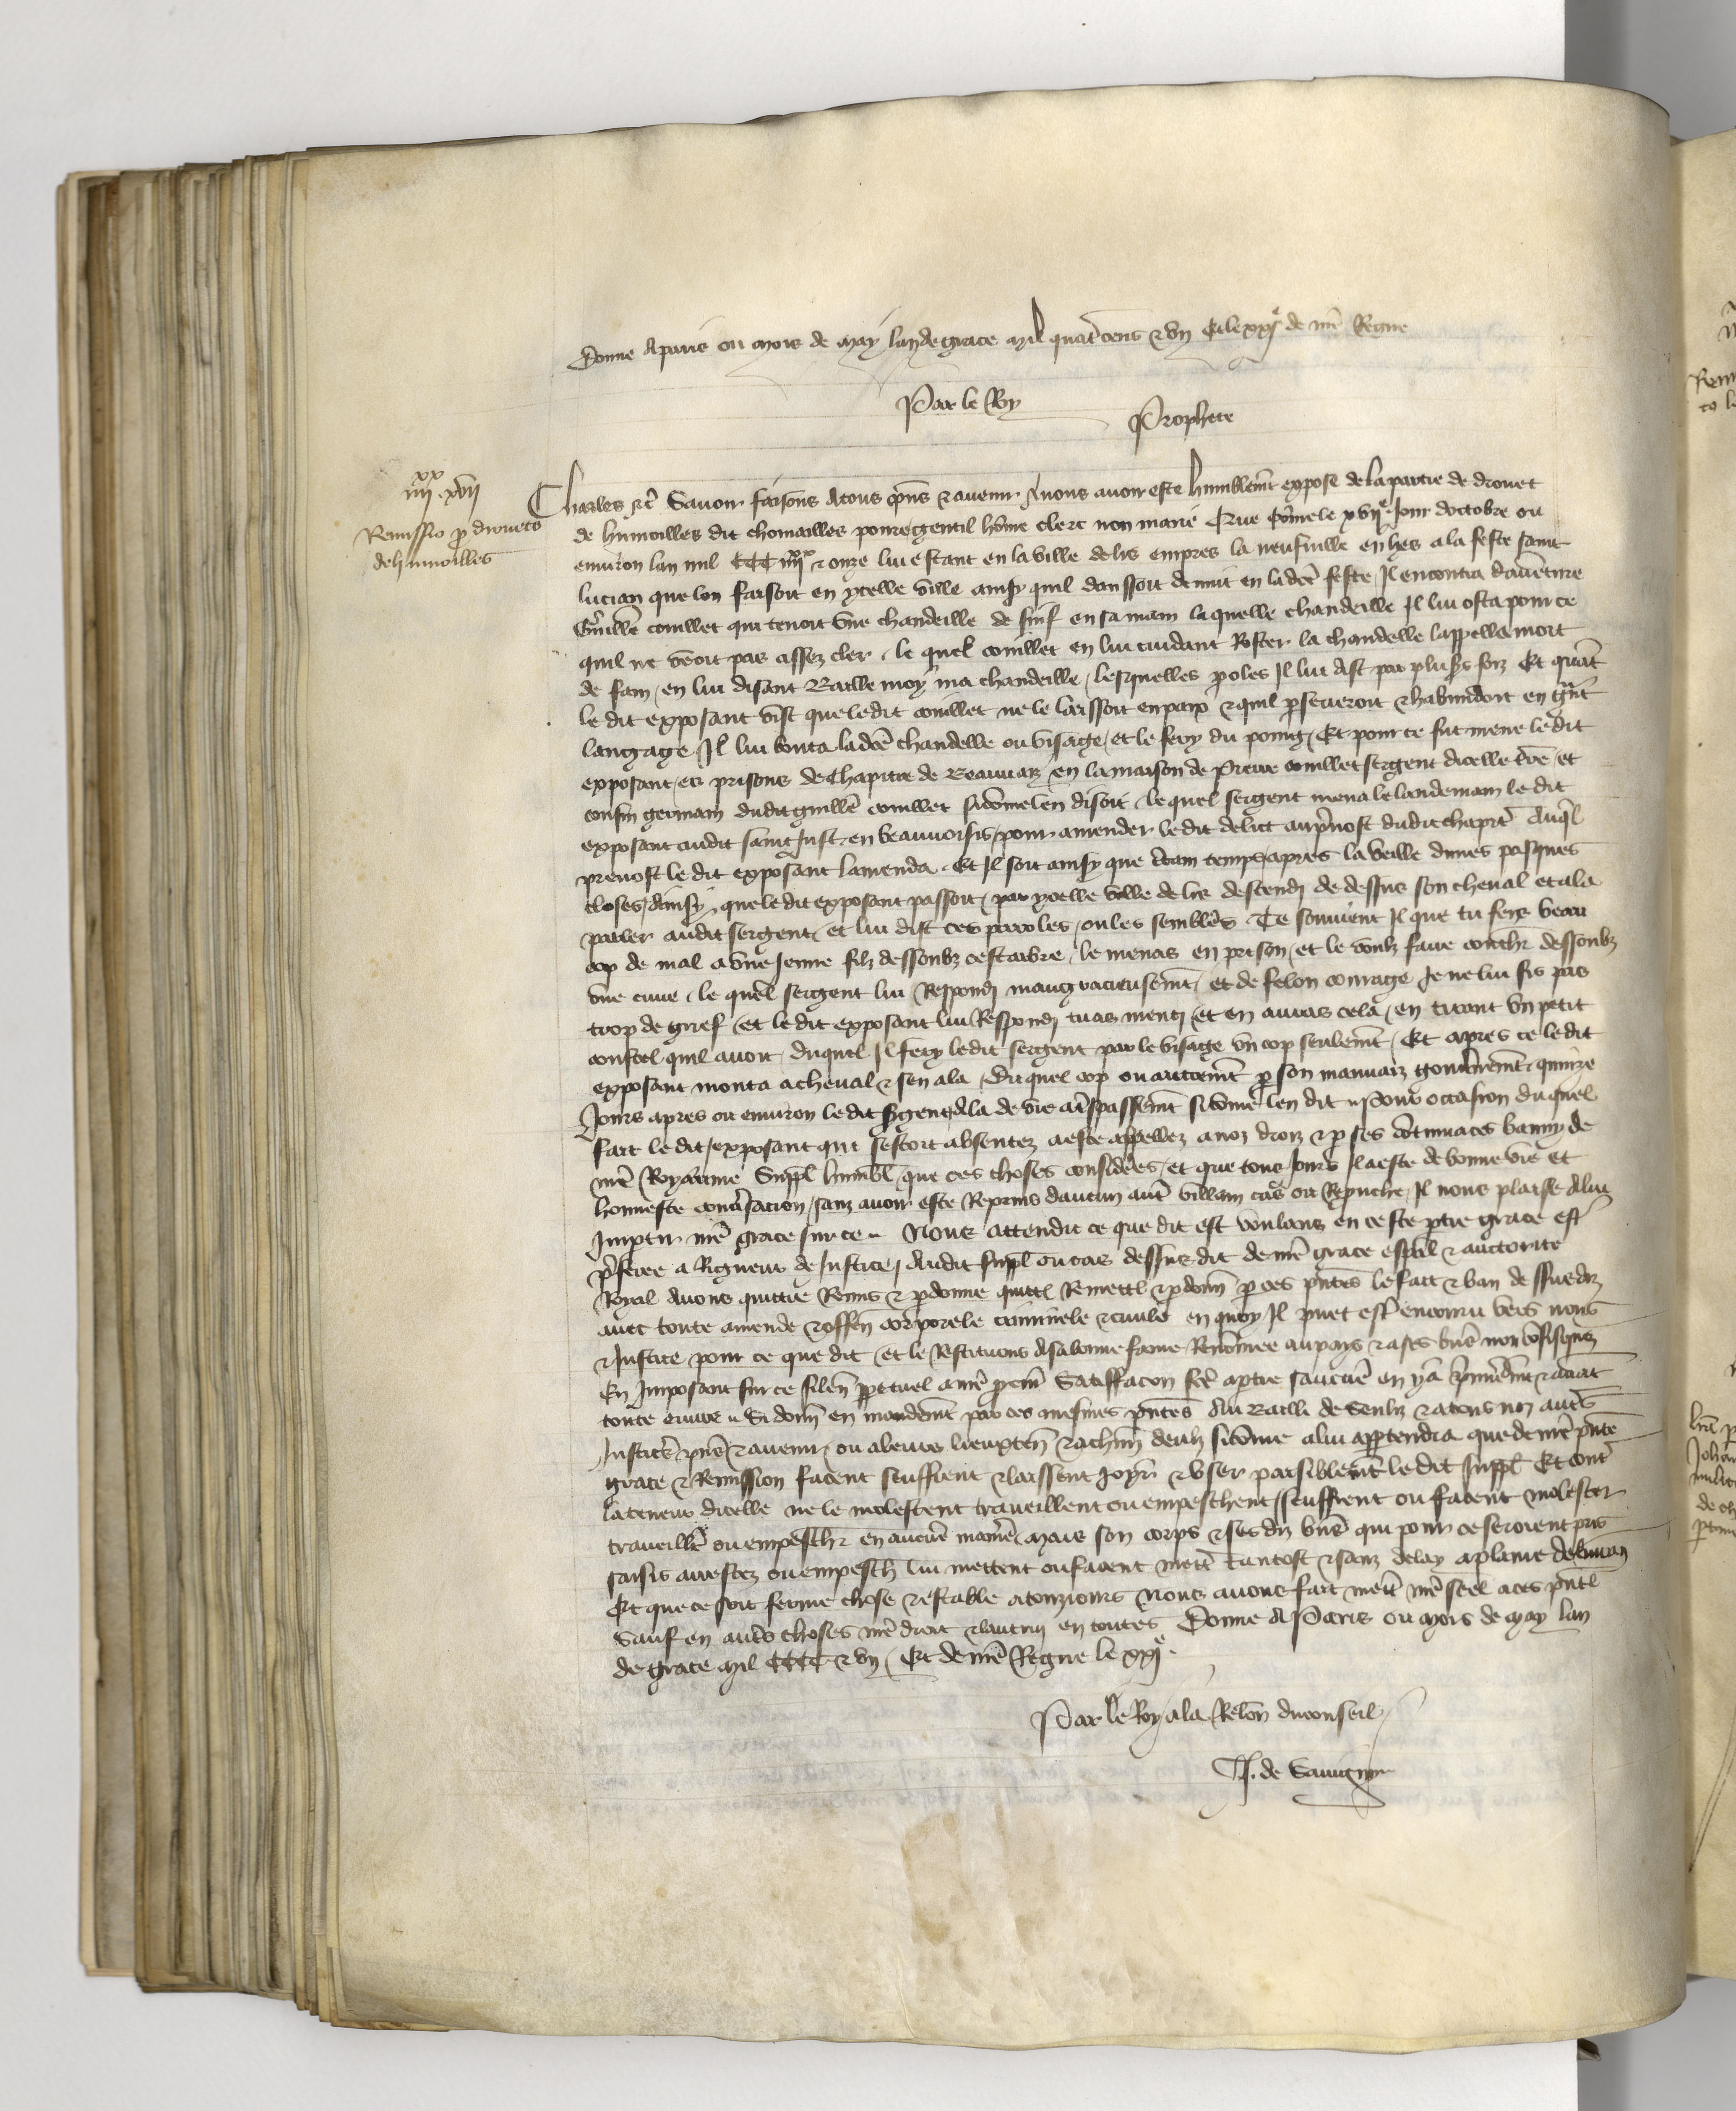 Donne a paris ou mois de may lan de grace mil quatcens & un Et le xxj^e de nre Regne
Par le Roy
Prophete
iiij^xx xvij
Remissio p droueto
de humoilles
Charles &c Savoir faisons a tous pns & avenir A nous avoir este humblemt expose de la partie de drouet
de humoilles dit chomailles povre gentil home clerc non marie Que come le xvij^e jour doctobre ou
environ lan mil CCC iiij^xx & onze lui estant en la ville de lis empres la neufville en hes a la feste saint
lucian que lon faisoit en ycelle ville ainsy quil danssoit de nuit en ladce feste Il encontra daventure
Guille couillet qui tenoit une chandeille de suif en sa main laquelle chandeille Il lui osta pour ce
quil ne veoit pas assez cler le quel couillet en lui cuidant Roster la chandelle lappella mort
de fain en lui disant Baille moy ma chandeille lesquelles poles Il lui dist par plus's foiz Et quat
le dit exposant vist que ledit couillet ne le laissoit en paix & quil pseveroit & habundoit en gnt
langage Il lui bouta ladce chandelle ou visage et le fery du poing Et pour ce fut mene le dit
exposant es prisons de Chapitre de Beauvaiz en la maison de pierre couillet sergent dicelle tre et
cousin germain dudit guille couillet si come len disoit le quel sergent mena le landemain le dit
exposant audit saint Just en beauvoisis pour amender le dit delict au pvost dudit chapite Auql
prevost le dit exposant lamenda Et Il soit ainsy que temps apres la veille dunes pasques
closes dainsy que le dit exposant passoit par ycelle ville de lis descendj de dessus son cheval et ala
parler audit sergent et lui dist ces paroles ou les sembles Te souvient Il que tu feiz beau
cop de mal a une jeune filz dessoubz cest arbre le menas en prison et le voulz faire couchr dessoubz
une cuve le quel sergent lui Respondj maugracieusemt et de felon courage Je ne lui fis pas
trop de grief et le dit exposant lui Respondj tu as mentj et en auras cela en tirant un petit
coustel quil avoit duquel Il fery ledit sergent par le visage un cop seulemt Et apres ce le dit
exposant monta a cheval & sen ala Du quel cop ou autremt p son mauvaiz gouvnemt quinze
Jours apres ou environ le dit sgent ala de vie a tspassemt si come len dit Pour occasion duquel
fait le dit exposant qui sestoit absentez a este appellez a noz droiz & p ses cotumaces banny de
nre Royaume Suppl humbl que ces choses consideres et que tous jours Il a este de bonne vie et
honneste conv'sacion sanz avoir este Reprins daucun aut villain cas ou Repruche Il nous plaise a lui
Impartir nre grace sur ce Nous attendu ce que dit est voulans en ceste ptie grace est
pferee a Rigueur de Justice Audit suppl ou cas dessus dit de nre grace espal & auctorite
Royal Avons quictie Remis & pdonne quictl Remettl & pdonn p ces pntes le fait & ban dessusdiz
avec toute amende & offen corporele criminele & civile en quoy Il puet est encouru vers nous
& Justice pour ce que dit et le Restituons a sa bonne fame Renomee au pays & a ses bns non cofisquez
En Imposant sur ce silen ppetuel a nre pcur Satiffacon fce a ptie
toute euvre Si donn en mandemt par ces mesmes pntes Au Bailli de senlis & a tous noz aut's
Justic's pns & avenir ou a leurs lieuxten & a chun deulz si come a lui apptendra que de nre pnte
grace & Remission facent seuffrent & laissent joyr & user paisiblemt le dit suppl Et cont
la teneur dicelle ne le molestent traveillent ou empeschent seuffrent ou facent molester
traveillr ou empeschr en aucune manre mais son corps & ses diz bns qui pour ce seroient pris
saisis arrestez ou empesch lui mettent ou facent mett tantost & sanz delay a plaine delivran
Et que ce soit ferme chose & estable a touzjours Nous avons fait mett nre seel a ces pntl
Sauf en aut's choses nre droit & lautruy en toutes Donne A Paris ou mois de may lan
de grace mil CCCC & un Et de nre Regne le xxj^e
Par le Roy a la Relon du conseil
J. de Sauvigny